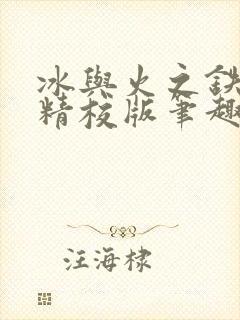 冰與火之鉄
精校版筆趣
汪海棣